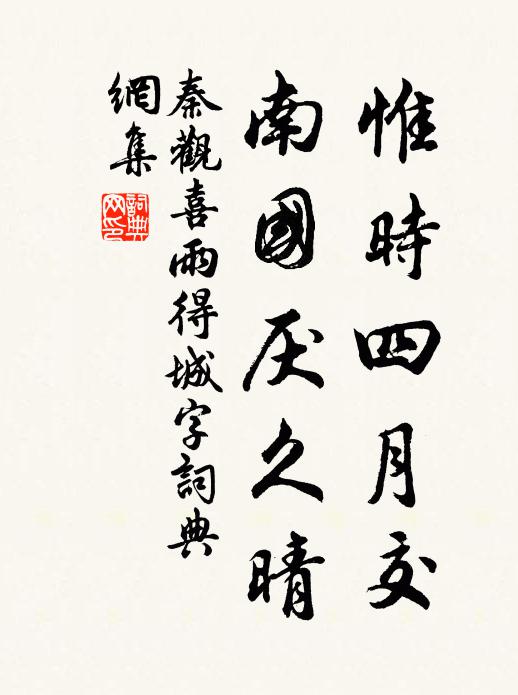 惟時四月交
南國厌久晴
秦觀喜雨得城字詞典
網集
詞典
网印